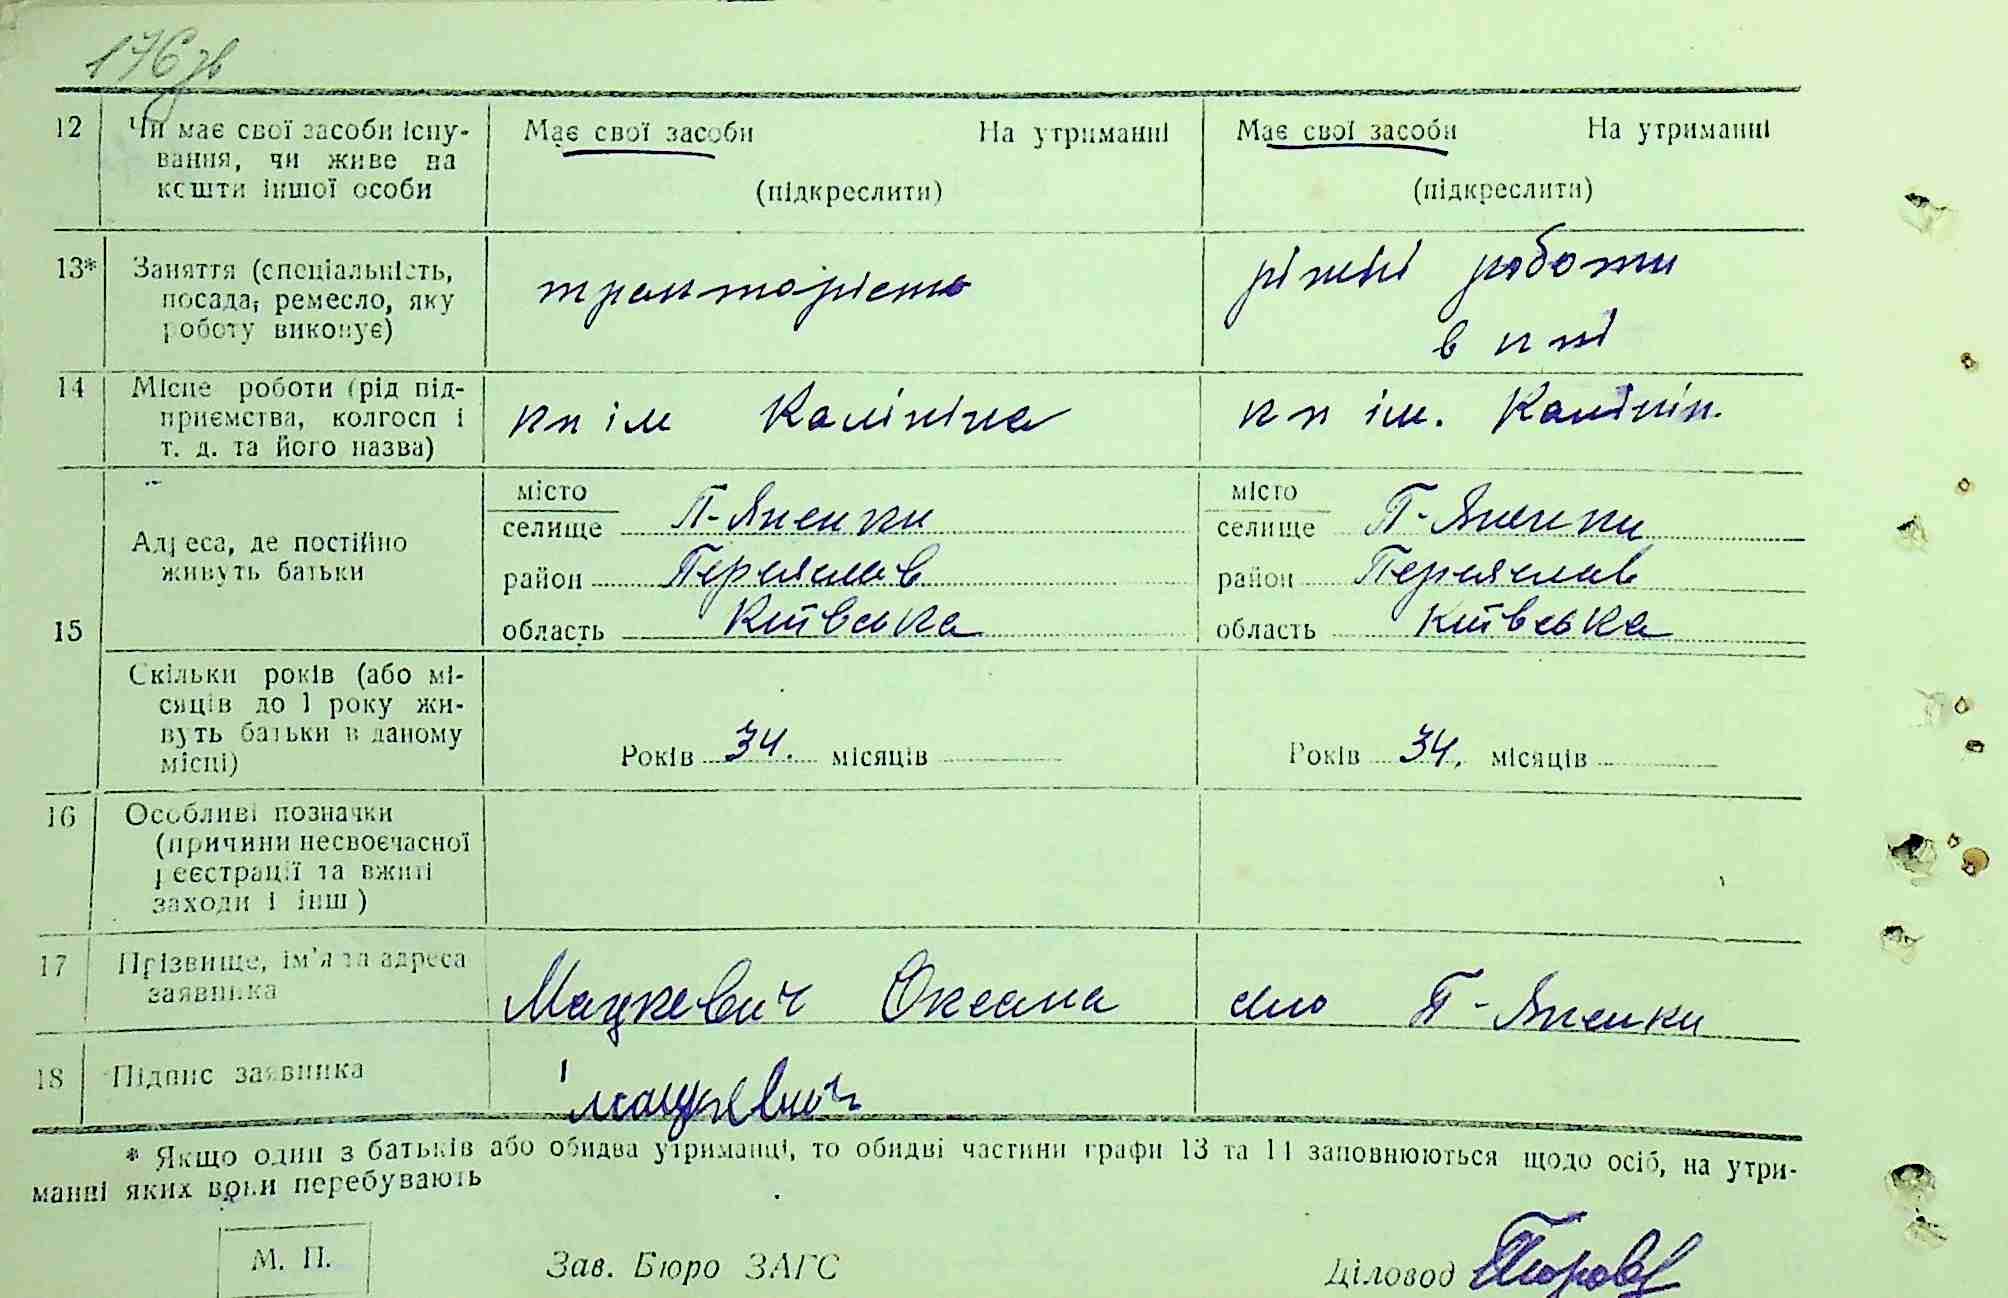 176 зв
12 Чи має свої засоби існу- Має свої засоби На утриманні Має свої засоби На утриманні
вання, чи живе на
кошти іншої особи (підкреслити) (підкреслити)
13* Заняття (спеціальність, тракторіст ріжні роботи
посада, ремесло, яку
роботу виконує) в кті
14 Місце роботи (рід під- кп ім Калініна кп ім. Калінін.
приємства, колгосп і
т. д. та його назва)
місто місто
селище П-Яненки селище П-Яненки
Адреса, де постійно
живуть батьки район Переяслав район Переяслав
15 область Київська область Київська
Скільки років (або мі-
сяців до 1 року жи-
вуть батьки в даному Років 34. місяців Років 34. місяців
місці)
16 Особливі позначки
(причини несвоєчасної
реєстрації та вжиті
заходи і інш)
17 Прізвище, ім'я та адреса
заявника Мацкевич Оксана село П-Яненки
18 Підпис заявника Мацкевич
* Якщо один з батьків або обидва утриманці, то обидві частини графи 13 та 14 заповнюються щодо осіб, на утри-
манні яких вони перебувають
М. П. Зав. Бюро ЗАГС Діловод